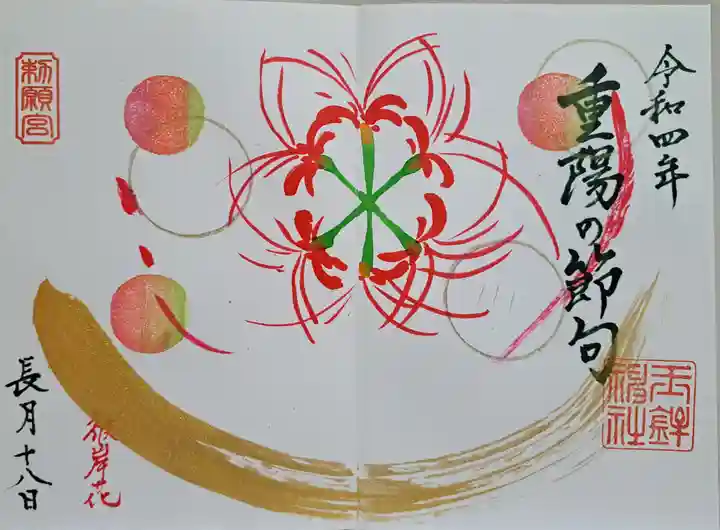 令和四年
重陽の節句
玉鉾神社
勅願宮
彼岸花
長月十八日